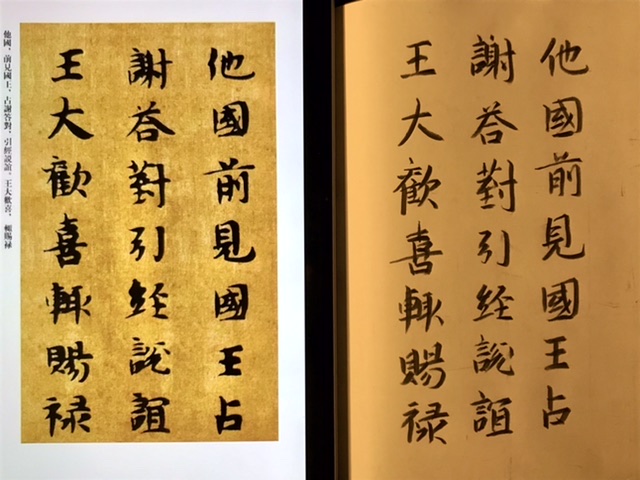 他國前見國王占
謝荅對引經説誼
王大歡喜輒賜禄
他國，前見國王、占謝答對，引經説誼，王大歡喜，輒賜禄
他國前見國王占
謝荅對引經説誼
王大歡喜輒賜禄